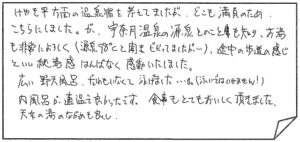 けやき平方面の温泉宿を考えてましたが、どこも満員のため
こちらにしました。が、宇奈月温泉の源泉とのこと事も知り、お湯
も非常によろしく(源泉98°と聞きビビってましたがー)、途中の歩道の感じ
といい秘湯感はんぱなく感動いたしました。
広い野天風呂、だれもいなくて泳げました…ね(泳いではいけません!)
内風呂が適温で良かったです。食事もとてもおいしく頂きました。
天女の湯のながめも良し。